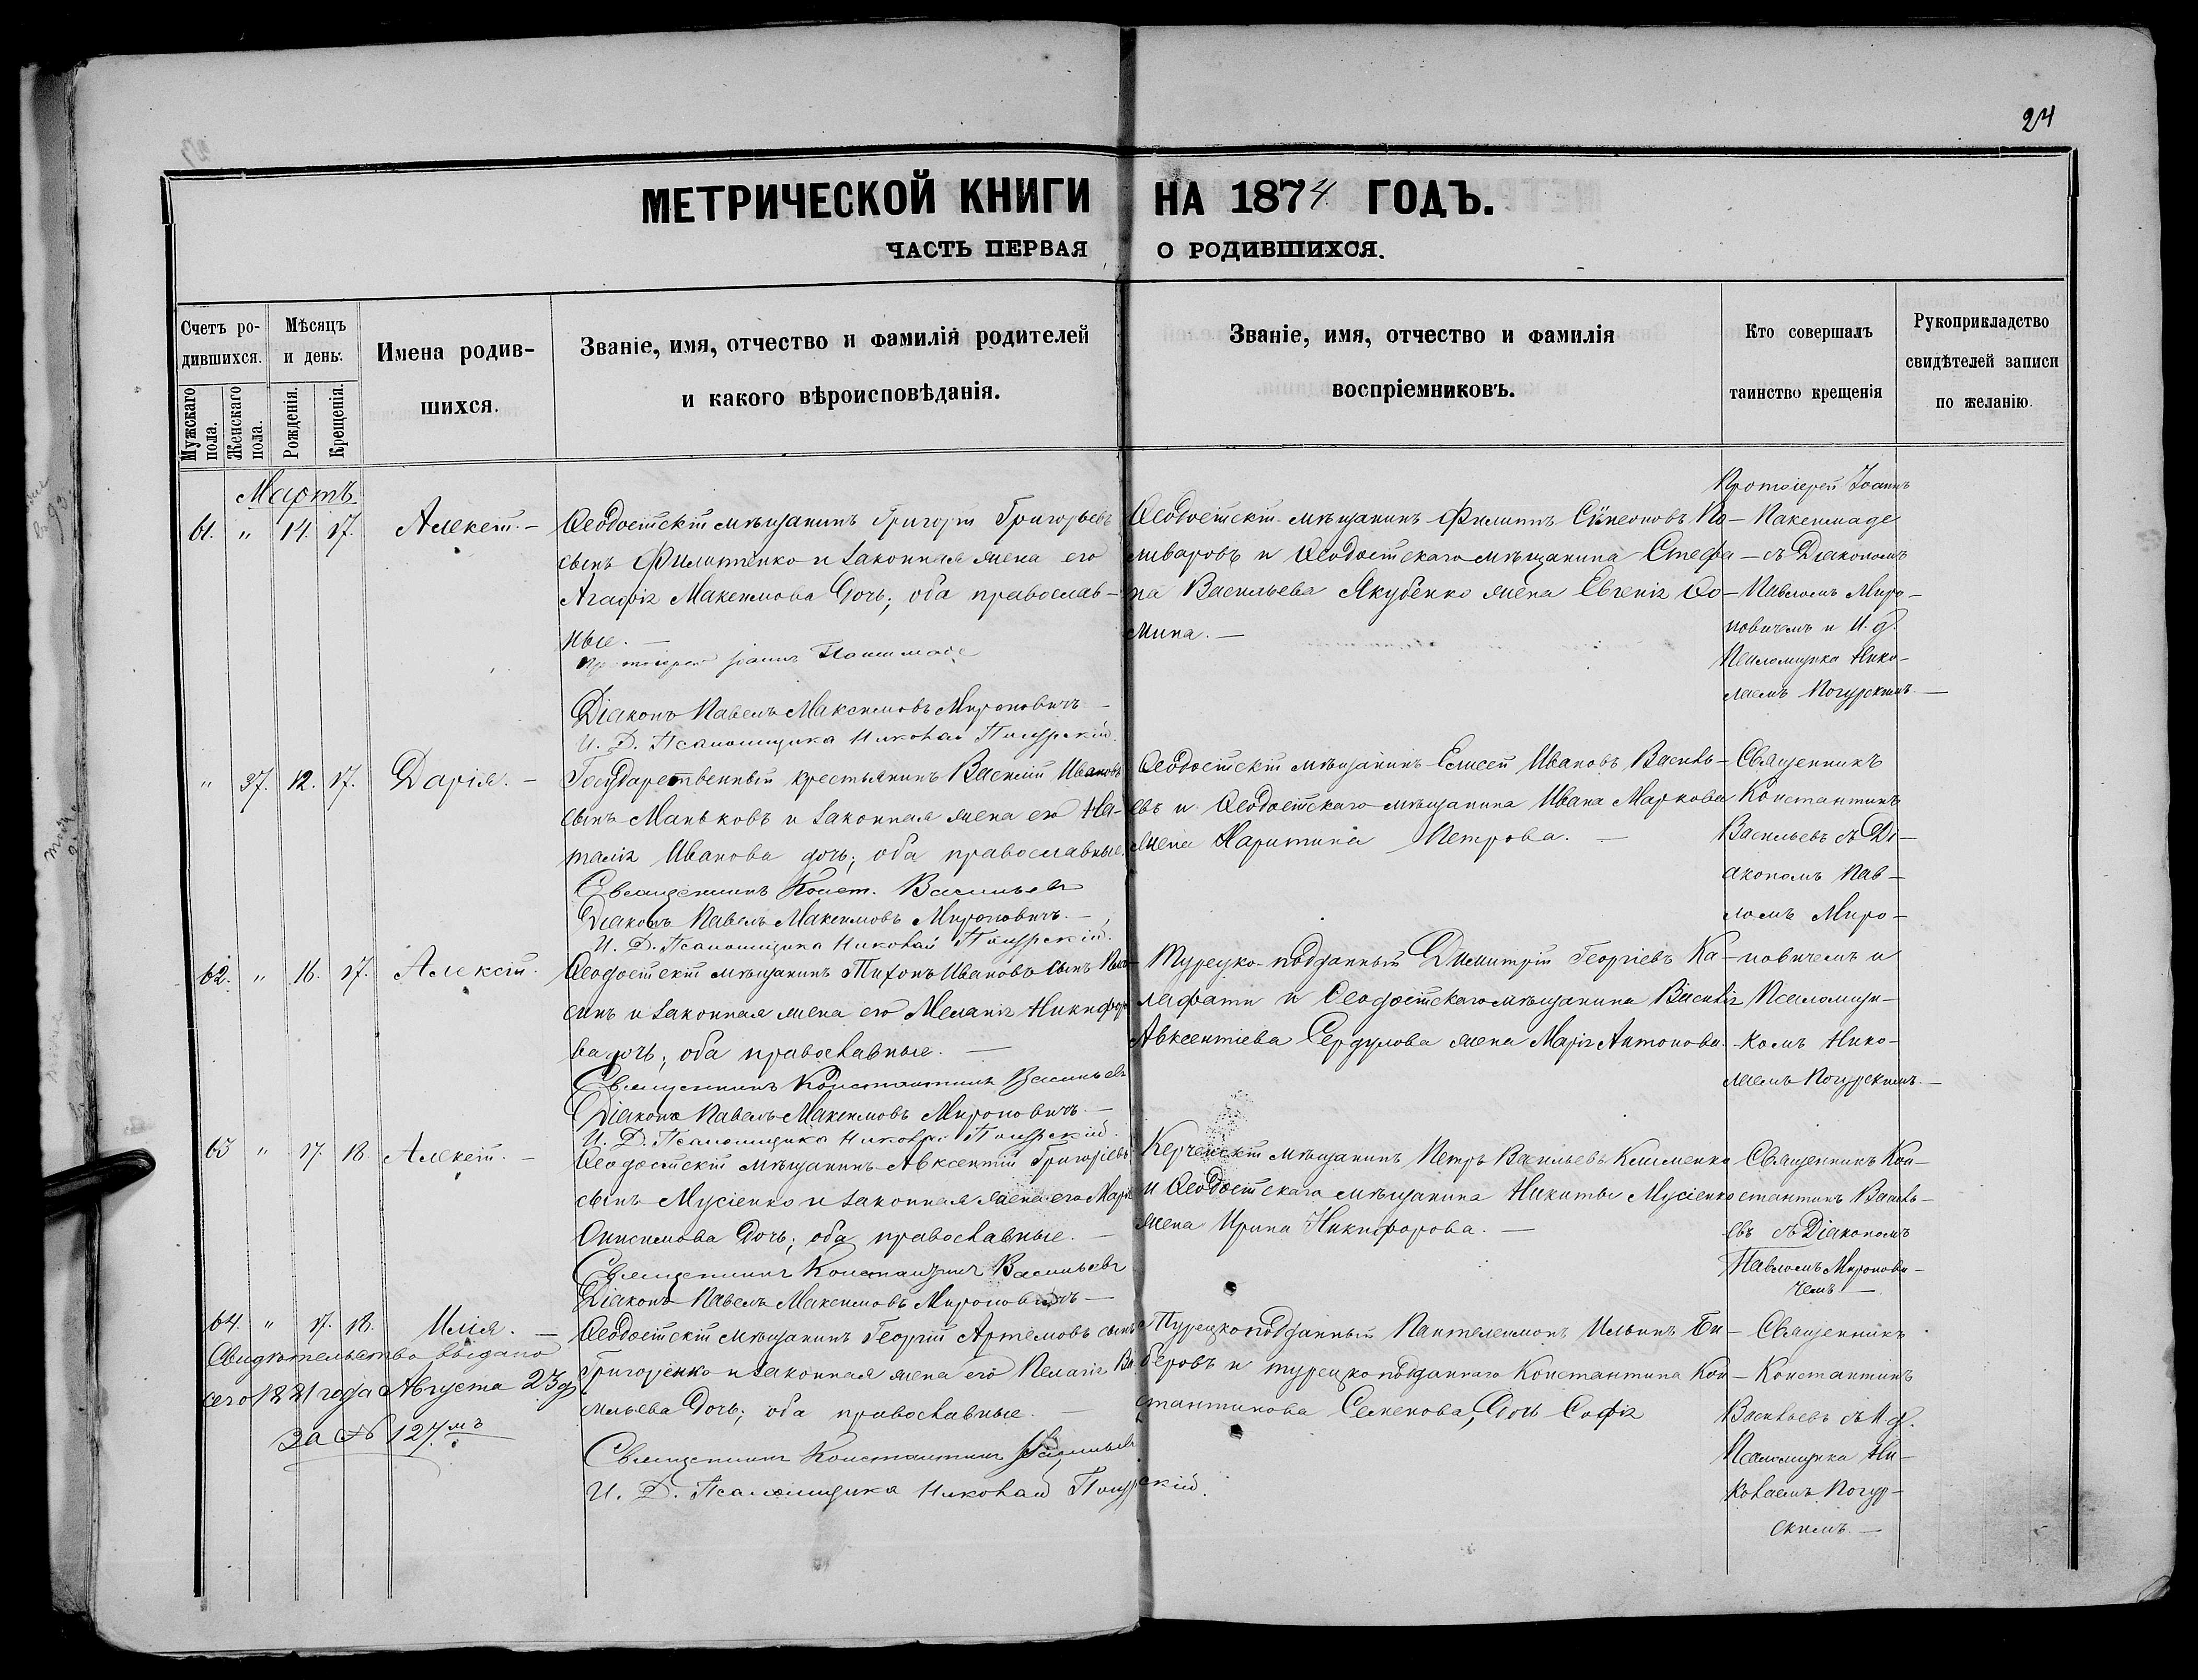 24
МЕТРИЧЕСКОЙ КНИГИ НА 1874 ГОДЪ.
ЧАСТЬ ПЕРВАЯ О РОДИВШИХСЯ.
Счетъ ро-
дившихся.
Мужскаго пола.
Женскаго пола.
Мѣсяцъ
и день.
Рожденія.
Крещенія.
Имена родив-
шихся.
Званіе, имя, отчество и фамилія родителей
и какого вѣроисповѣданія.
Званіе, имя, отчество и фамилія
воспріемниковъ.
Кто совершалъ
таинство крещенія
Рукоприкладство
свидѣтелей записи
по желанію.
Мартъ
61. " 14. 17. Алексѣй. —
Ѳеодосійскій мѣщанинъ Григорій Григорьевъ
сынъ Филипенко и законная жена его
Агафія Максимова дочь; оба православ-
ные. —
Протоіерей Іоаннъ
Діаконъ Павелъ Максимовъ Мироновичъ —
И. Д. Псаломщика Николай Погурскій.
Ѳеодосійскій мѣщанинъ Филиппъ Симеоновъ По-
иваровъ и Ѳеодосійскаго мѣщанина Стефа-
на Васильева Якубенко жена Евгенія Ѳо-
мина. —
Протоіерей Іоаннъ
съ Діакономъ
Павломъ Миро-
новичемъ и И. д.
Псаломщика Нико-
лаемъ Погурскимъ. —
" 37. 12. 17. Дарія. —
Государственный крестьянинъ Василій Ивановъ
сынъ Маньковъ и законная жена его На-
талія Иванова дочь; оба православные.
Священникъ Конст. Васильевъ
Діаконъ Павелъ Максимовъ Мироновичъ. —
И. Д. Псаломщика Николай Погурскій.
Ѳеодосійскій мѣщанинъ Елисей Ивановъ Василь-
евъ и Ѳеодосійскаго мѣщанина Ивана Маркова
жена Харитина Петрова. —
Священникъ
Константинъ
Васильевъ съ Ді-
акономъ Пав-
ломъ Миро-
новичемъ и
Псаломщи-
комъ Нико-
лаемъ Погурскимъ. —
62. " 16. 17. Алексій.
Ѳеодосійскій мѣщанинъ Тихонъ Ивановъ сынъ
и законная жена его Меланія Никифоро
ва дочь; оба православные. —
Священникъ Константинъ Васильевъ
Діаконъ Павелъ Максимовъ Мироновичъ. —
И. Д. Псаломщика Николай Погурскій.
Турецко-подданный Димитрій Георгіевъ Ка-
лафати и Ѳеодосійскаго мѣщанина Василія
Авксентіева Сердукова жена Марія Антонова.
63 " 17. 18. Алексѣй. —
Ѳеодосійскій мѣщанинъ Авксентій Григорьевъ
сынъ Мусіенко и законная жена его Марія
Онисимова дочь; оба православные. —
Священникъ Константинъ Васильевъ
Діаконъ Павелъ Максимовъ Мироновичъ —
Керченскій мѣщанинъ Петръ Васильевъ Клименко
и Ѳеодосійскаго мѣщанина Никиты Мусіенко
жена Ирина Никифорова. —
Священникъ Кон-
стантинъ Василь-
евъ съ Діакономъ
Павломъ Мironови-
чемъ. —
64. " 17. 18. Илія. —
Свидѣтельство выдано
сего 1881 года Августа 23 д.
за № 127мъ
Ѳеодосійскій мѣщанинъ Георгій Артемовъ сынъ
Григоренко и законная жена его Пелагія Ва
сильева дочь; оба православные. —
Священникъ Константинъ Васильевъ
И. Д. Псаломщика Николай Погурскій.
Турецкоподданный Пантелеимонъ Ильинъ Би-
беровъ и турецкоподданнаго Константина Кон-
стантинова Семенова, дочь Софія
Священникъ
Константинъ
Васильевъ съ И. д.
Псаломщика Ни-
колаемъ Погур-
скимъ. —